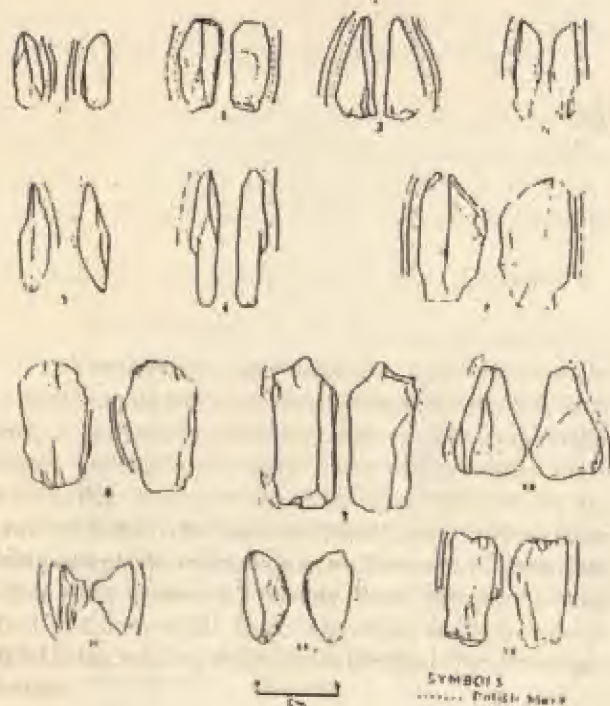 1
2
3
4
5
6
7
8
9
10
11
12
13
SYMBOLS
........ Polish Mark